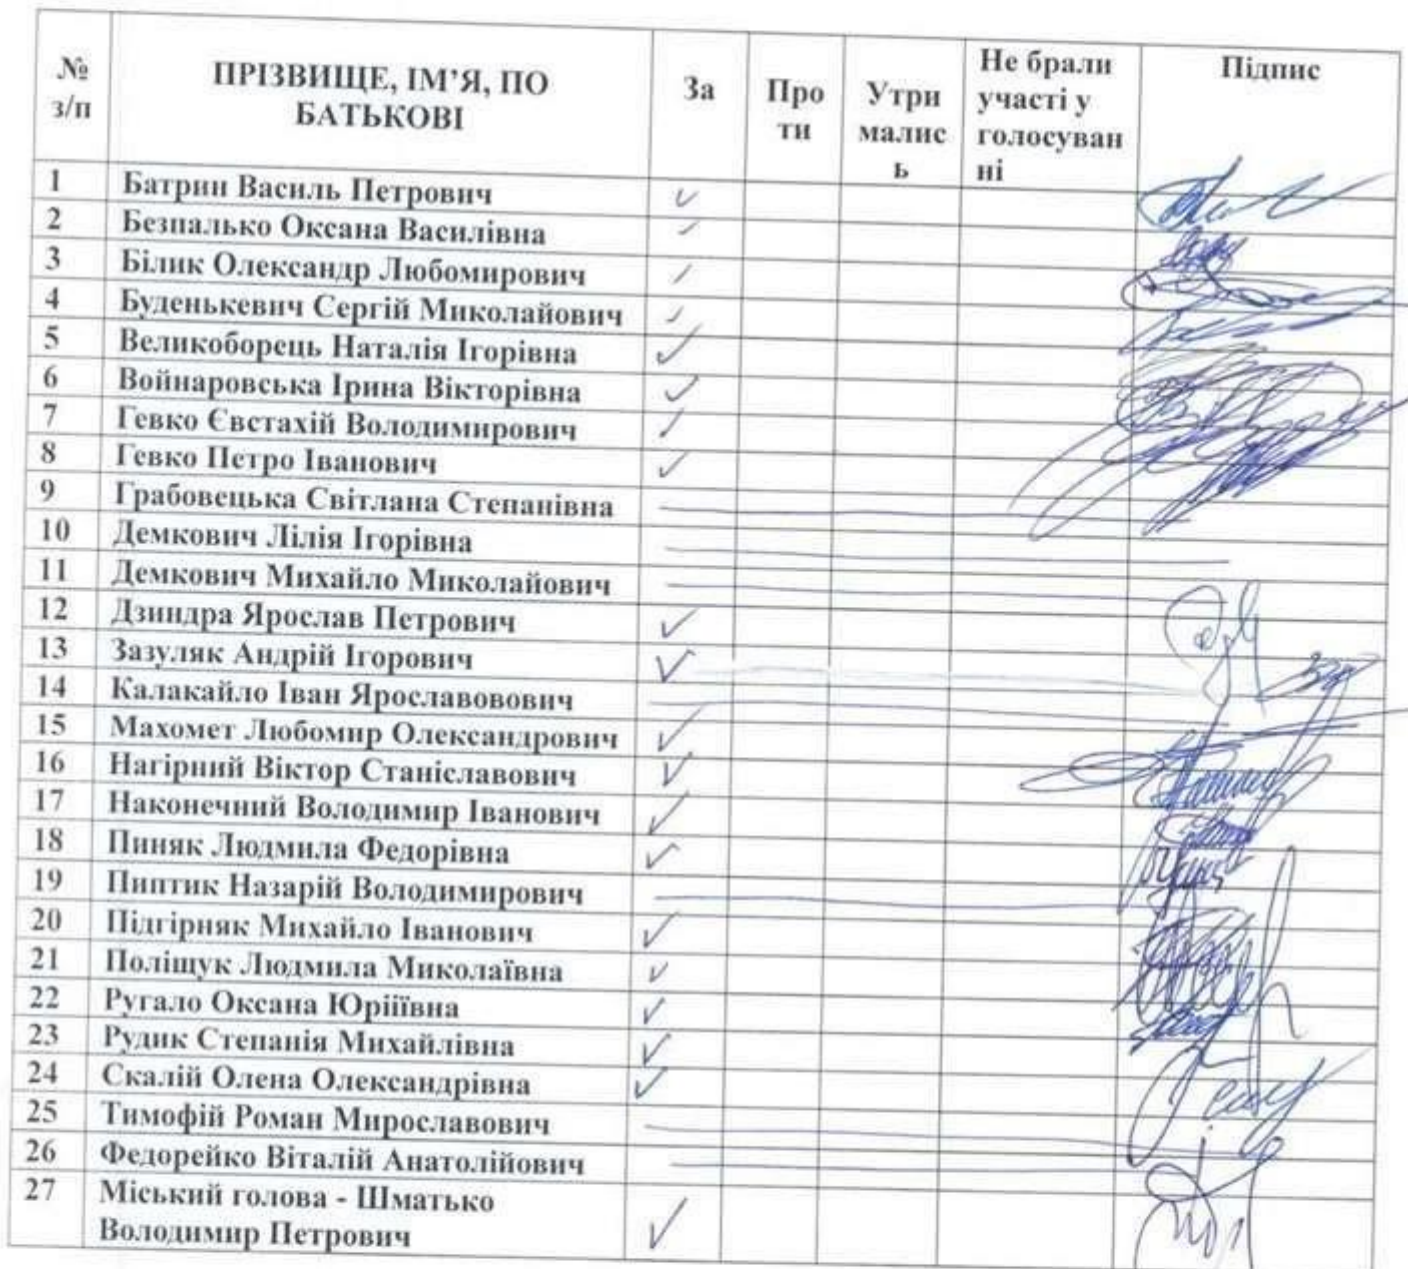 № з/п
ПРІЗВИЩЕ, ІМ’Я, ПО БАТЬКОВІ
За
Про ти
Утри малис ь
Не брали участі у голосуван ні
Підпис
1 Батрин Василь Петрович ✓
2 Безпалько Оксана Василівна ✓
3 Білик Олександр Любомирович ✓
4 Буденькевич Сергій Миколайович ✓
5 Великоборець Наталія Ігорівна ✓
6 Войнаровська Ірина Вікторівна ✓
7 Гевко Євстахій Володимирович ✓
8 Гевко Петро Іванович ✓
9 Грабовецька Світлана Степанівна
10 Демкович Лілія Ігорівна
11 Демкович Михайло Миколайович
12 Дзиндра Ярослав Петрович ✓
13 Зазуляк Андрій Ігорович ✓
14 Калакайло Іван Ярославовович
15 Махомет Любомир Олександрович ✓
16 Нагірний Віктор Станіславович ✓
17 Наконечний Володимир Іванович ✓
18 Пиняк Людмила Федорівна ✓
19 Пиптик Назарій Володимирович
20 Підгірняк Михайло Іванович ✓
21 Поліщук Людмила Миколаївна ✓
22 Ругало Оксана Юріїївна ✓
23 Рудик Степанія Михайлівна ✓
24 Скалій Олена Олександрівна ✓
25 Тимофій Роман Мирославович
26 Федорейко Віталій Анатолійович
27 Міський голова - Шматько
Володимир Петрович ✓